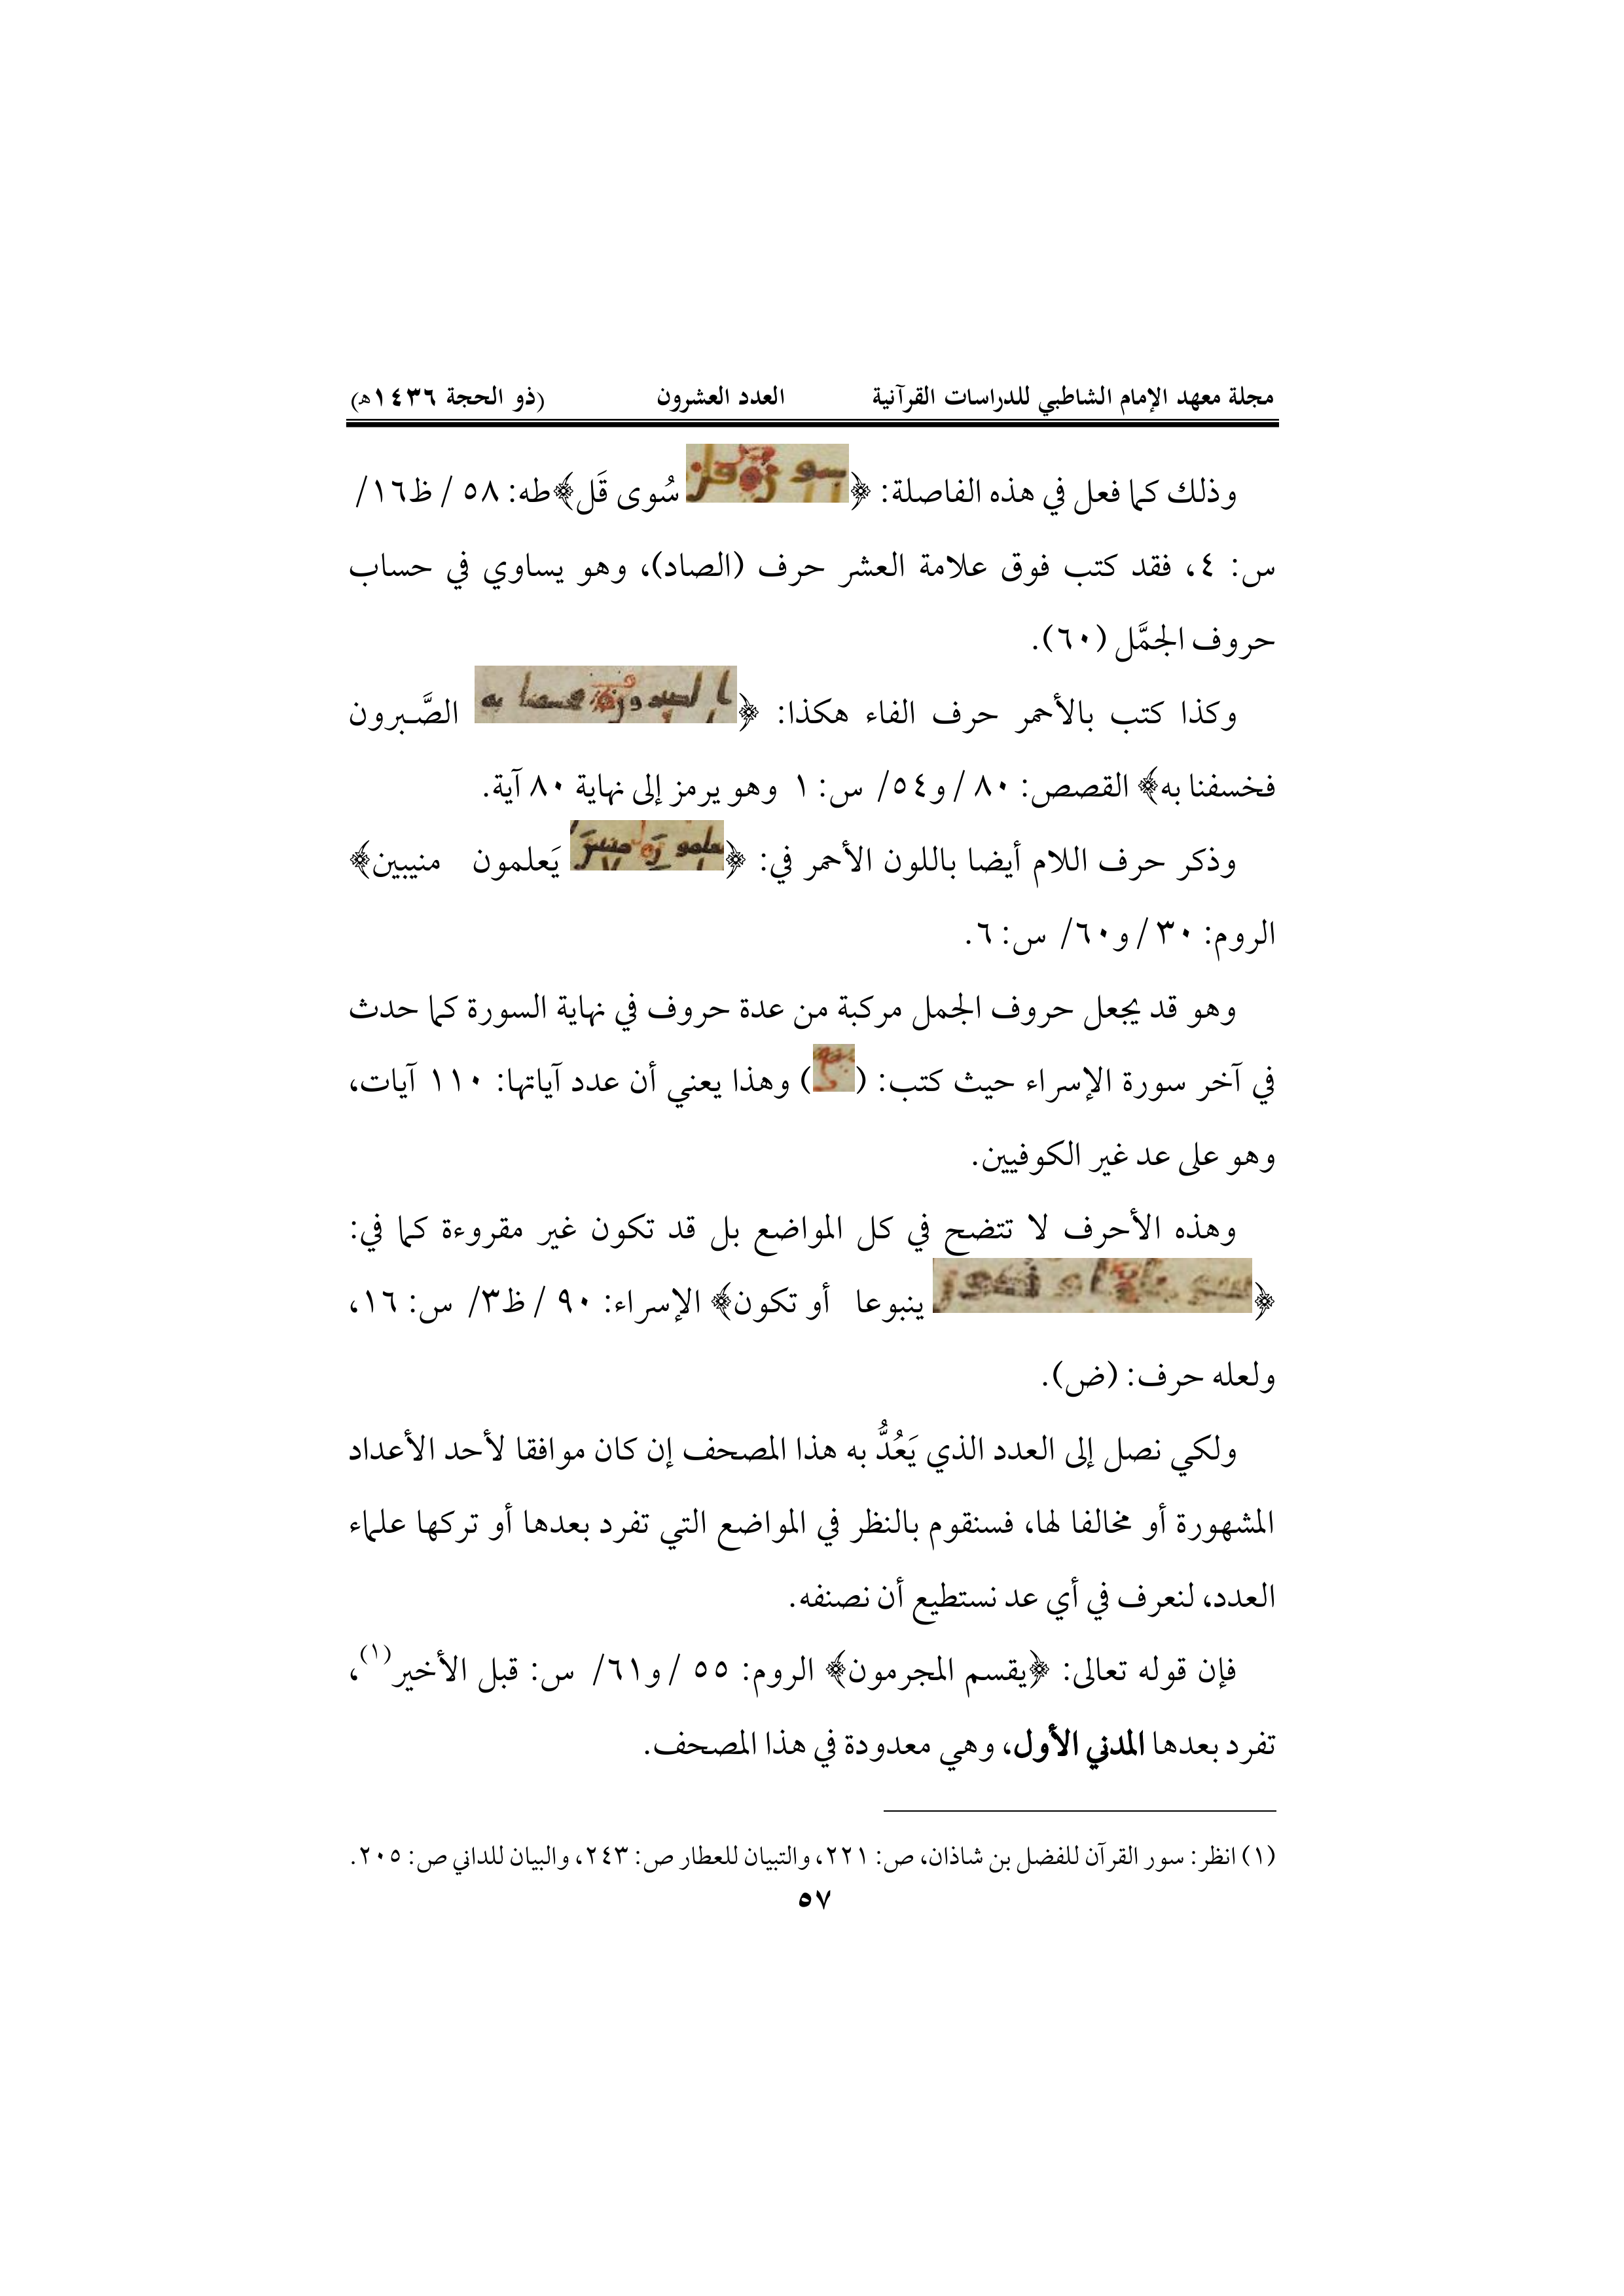 مجلة معهد الإمام الشاطبي للدراسات القرآنية العدد العشرون (ذو الحجة ١٤٣٦هـ)
وذلك كما فعل في هذه الفاصلة: ﴿سُوى قَل﴾طه: ٥٨ / ظ١٦/
س: ٤، فقد كتب فوق علامة العشر حرف (الصاد)، وهو يساوي في حساب
حروف الجمَّل (٦٠).
وكذا كتب بالأحمر حرف الفاء هكذا: ﴿ الصَّبرون
فخسفنا به﴾ القصص: ٨٠ / و٥٤/ س: ١ وهو يرمز إلى نهاية ٨٠ آية.
وذكر حرف اللام أيضا باللون الأحمر في: ﴿ يَعلمون منيبين﴾
الروم: ٣٠ / و٦٠/ س: ٦.
وهو قد يجعل حروف الجمل مركبة من عدة حروف في نهاية السورة كما حدث
في آخر سورة الإسراء حيث كتب: ( ) وهذا يعني أن عدد آياتها: ١١٠ آيات،
وهو على عد غير الكوفيين.
وهذه الأحرف لا تتضح في كل المواضع بل قد تكون غير مقروءة كما في:
﴿ ينبوعا أو تكون﴾ الإسراء: ٩٠ / ظ٣/ س: ١٦،
ولعله حرف: (ض).
ولكي نصل إلى العدد الذي يَعُدُّ به هذا المصحف إن كان موافقا لأحد الأعداد
المشهورة أو مخالفا لها، فسنقوم بالنظر في المواضع التي تفرد بعدها أو تركها علماء
العدد، لنعرف في أي عد نستطيع أن نصنفه.
فإن قوله تعالى: ﴿يقسم المجرمون﴾ الروم: ٥٥ / و٦١/ س: قبل الأخير(١)،
تفرد بعدها المدني الأول، وهي معدودة في هذا المصحف.
(١) انظر: سور القرآن للفضل بن شاذان، ص: ٢٢١، والتبيان للعطار ص: ٢٤٣، والبيان للداني ص: ٢٠٥.
٥٧